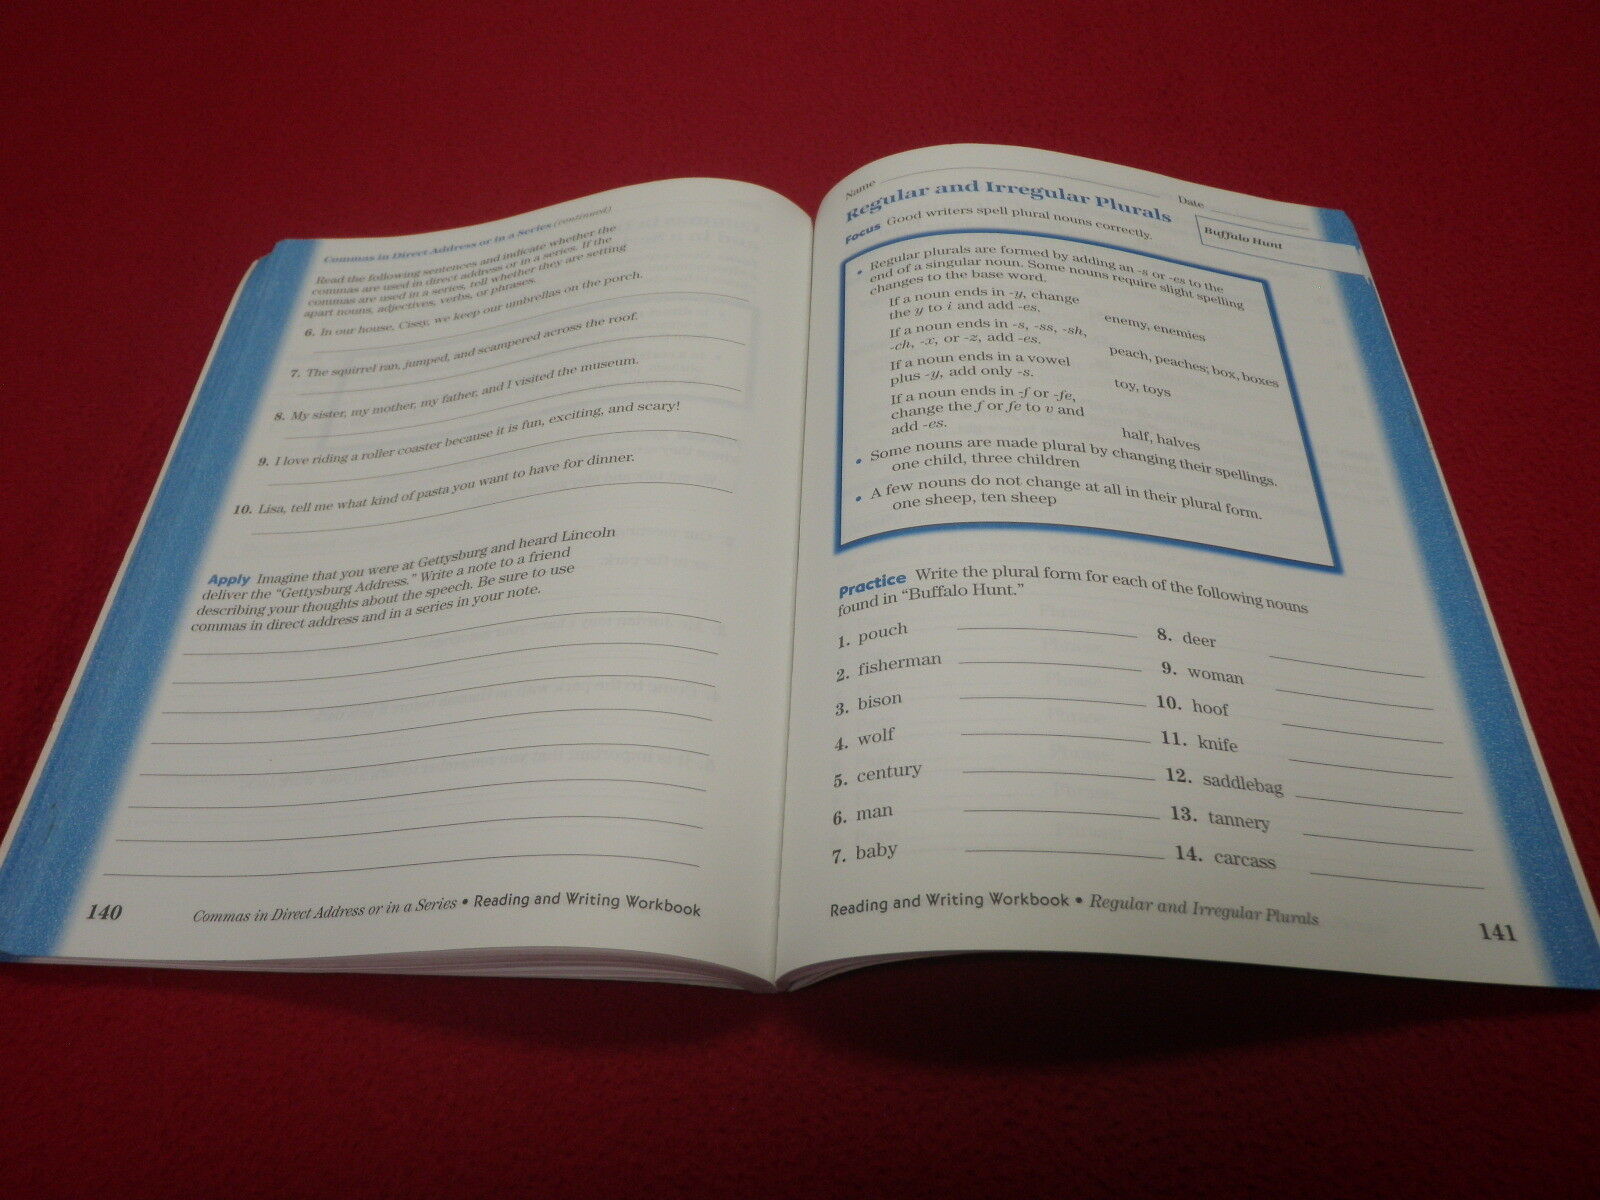 Commas in Direct Address or in a Series (continued)
Read the following sentences and indicate whether the
commas are used in direct address or in a series. If the
commas are used in a series, tell whether they are setting
apart nouns, adjectives, verbs, or phrases.
6. In our house, Cissy, we keep our umbrellas on the porch.
7. The squirrel ran, jumped, and scampered across the roof.
8. My sister, my mother, my father, and I visited the museum.
9. I love riding a roller coaster because it is fun, exciting, and scary!
10. Lisa, tell me what kind of pasta you want to have for dinner.
Apply Imagine that you were at Gettysburg and heard Lincoln
deliver the "Gettysburg Address." Write a note to a friend
describing your thoughts about the speech. Be sure to use
commas in direct address and in a series in your note.
140 Commas in Direct Address or in a Series • Reading and Writing Workbook
Name Date
Regular and Irregular Plurals
Buffalo Hunt
Focus Good writers spell plural nouns correctly.
• Regular plurals are formed by adding an -s or -es to the
end of a singular noun. Some nouns require slight spelling
changes to the base word.
If a noun ends in -y, change
the y to i and add -es. enemy, enemies
If a noun ends in -s, -ss, -sh,
-ch, -x, or -z, add -es. peach, peaches; box, boxes
If a noun ends in a vowel
plus -y, add only -s. toy, toys
If a noun ends in -f or -fe,
change the f or fe to v and
add -es. half, halves
• Some nouns are made plural by changing their spellings.
one child, three children
• A few nouns do not change at all in their plural form.
one sheep, ten sheep
Practice Write the plural form for each of the following nouns
found in "Buffalo Hunt."
1. pouch
2. fisherman
3. bison
4. wolf
5. century
6. man
7. baby
8. deer
9. woman
10. hoof
11. knife
12. saddlebag
13. tannery
14. carcass
Reading and Writing Workbook • Regular and Irregular Plurals 141